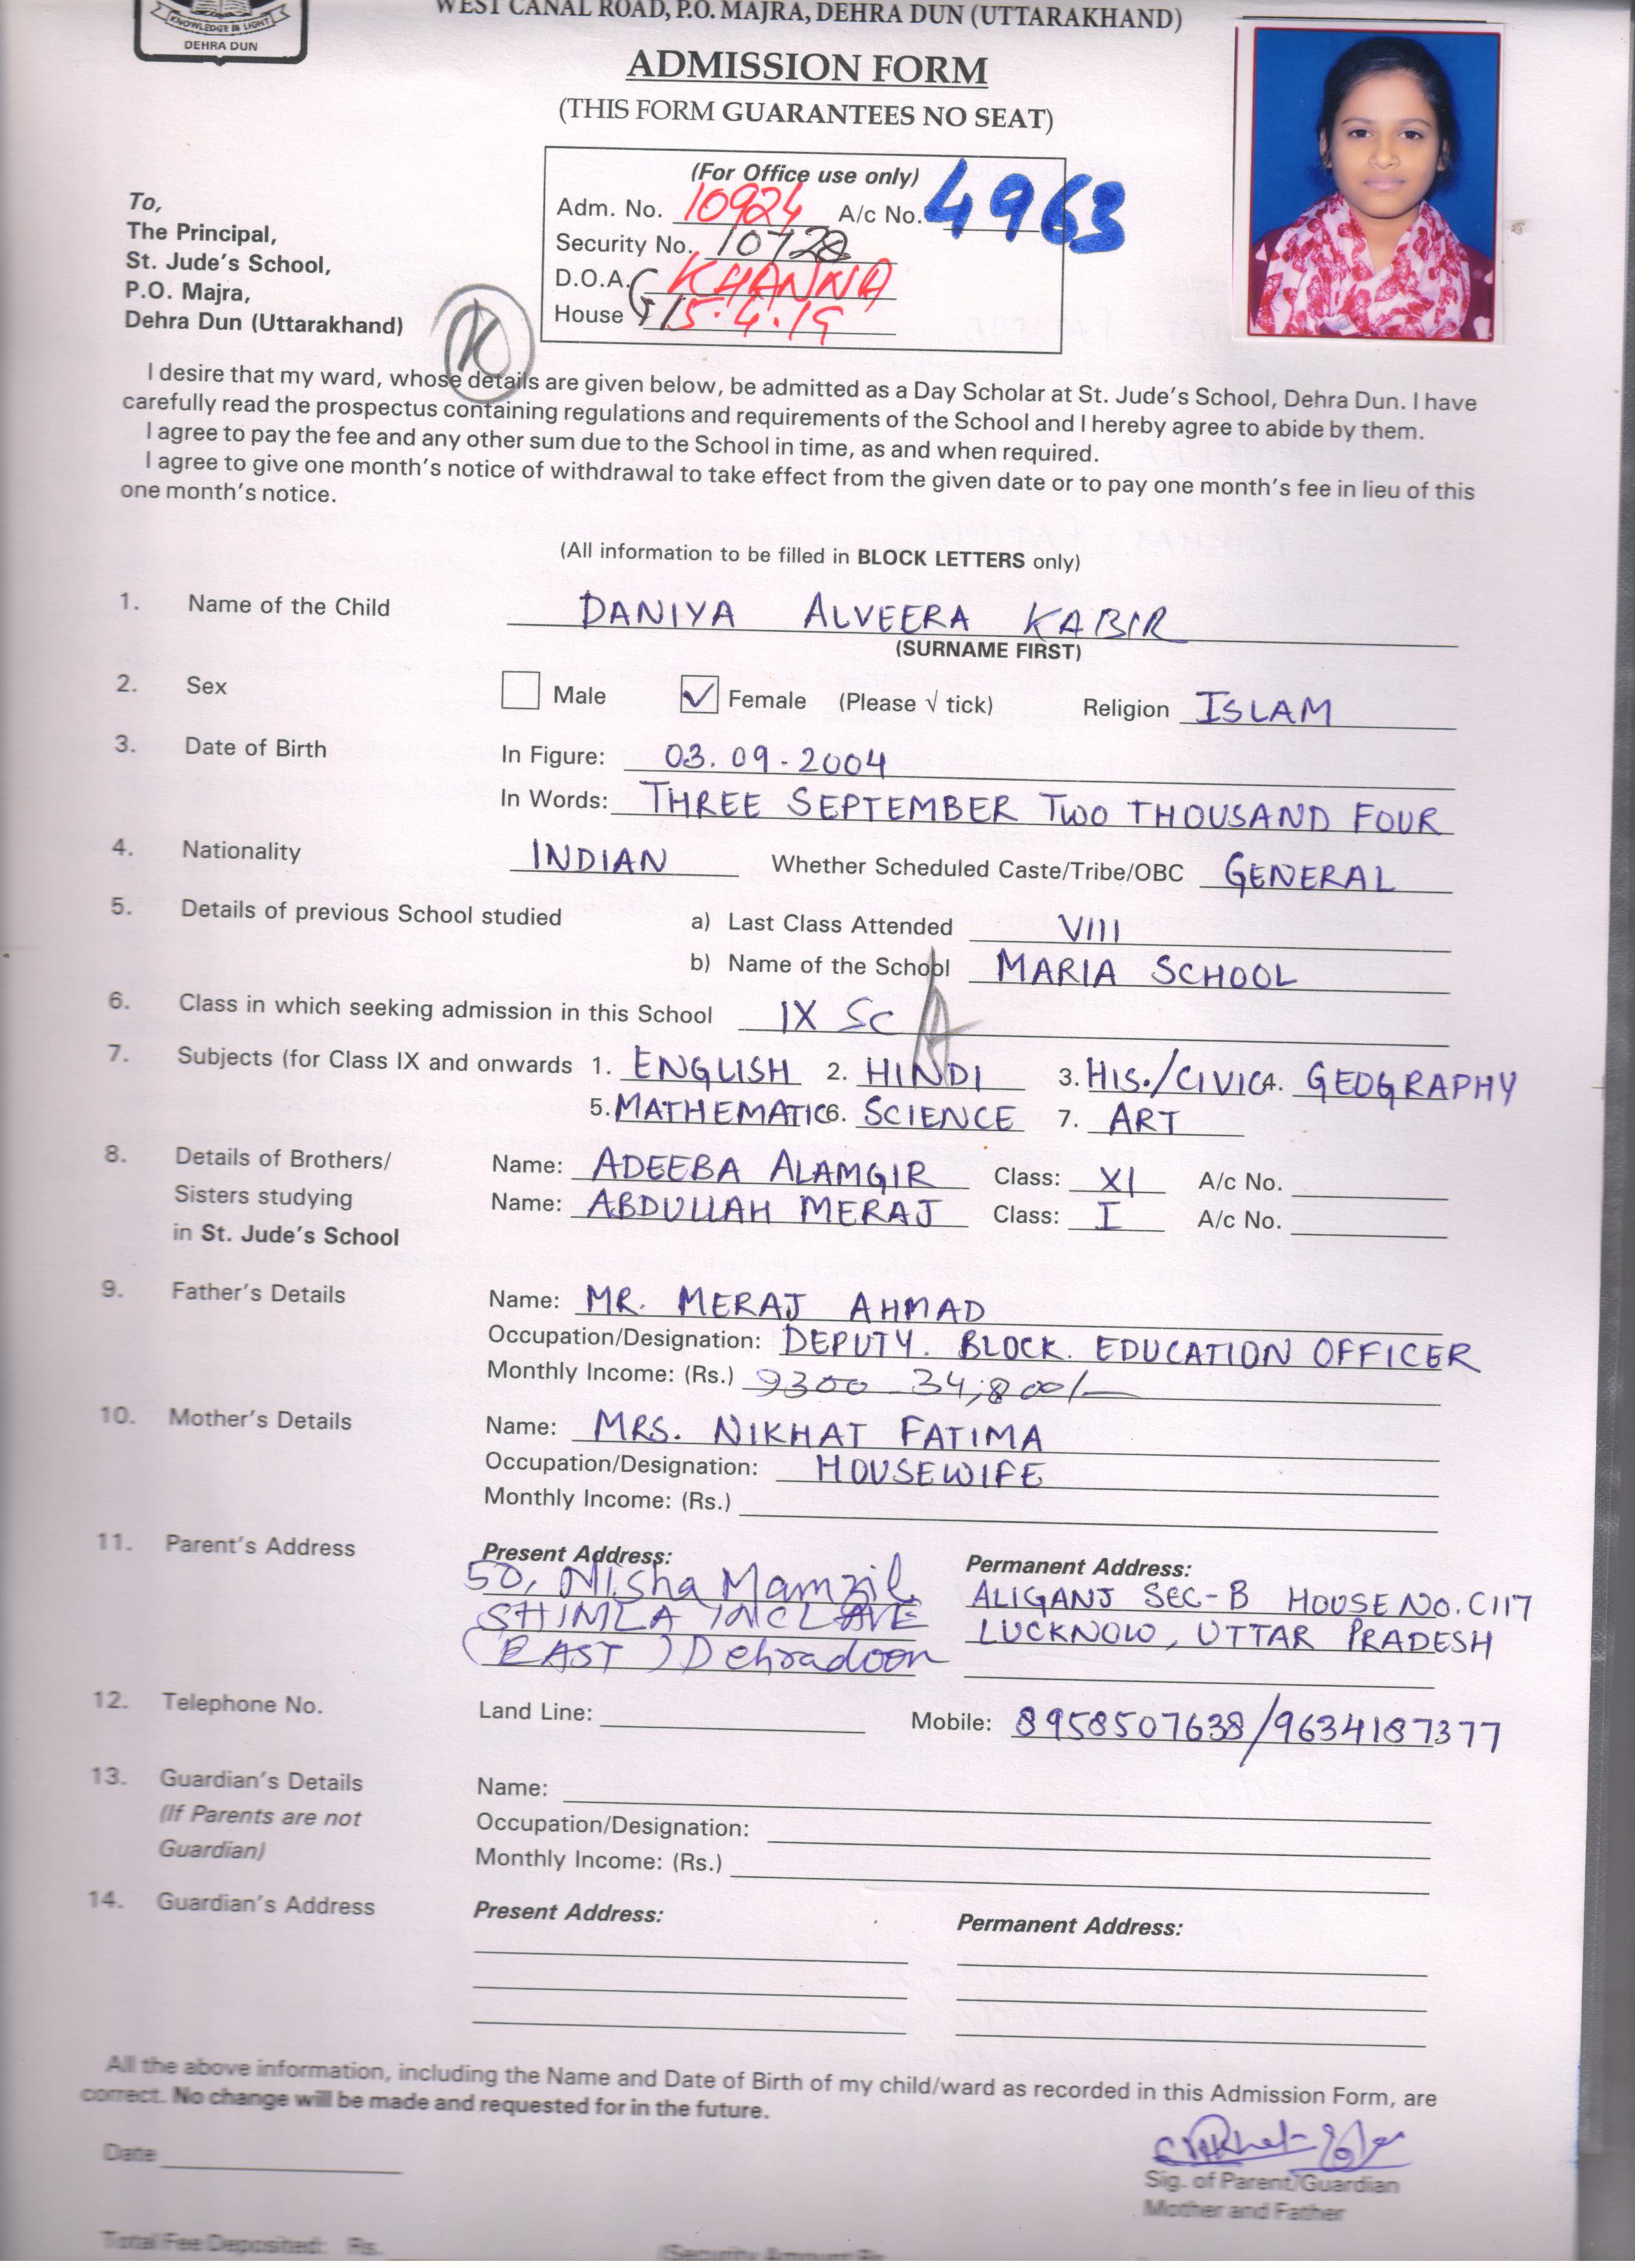 KNOWLEDGE IS LIGHT
DEHRA DUN
WEST CANAL ROAD, P.O. MAJRA, DEHRA DUN (UTTARAKHAND)
ADMISSION FORM
(THIS FORM GUARANTEES NO SEAT)
(For Office use only)
Adm. No. 10924 A/c No. 4963
Security No. 10728
D.O.A. KHANNA
House 15.4.19
To,
The Principal,
St. Jude's School,
P.O. Majra,
Dehra Dun (Uttarakhand)
I desire that my ward, whose details are given below, be admitted as a Day Scholar at St. Jude's School, Dehra Dun. I have
carefully read the prospectus containing regulations and requirements of the School and I hereby agree to abide by them.
I agree to pay the fee and any other sum due to the School in time, as and when required.
I agree to give one month's notice of withdrawal to take effect from the given date or to pay one month's fee in lieu of this
one month's notice.
(All information to be filled in BLOCK LETTERS only)
1. Name of the Child DANIYA ALVEERA KABIR
(SURNAME FIRST)
2. Sex Male ✓ Female (Please √ tick) Religion ISLAM
3. Date of Birth In Figure: 03.09-2004
In Words: THREE SEPTEMBER TWO THOUSAND FOUR
4. Nationality INDIAN Whether Scheduled Caste/Tribe/OBC GENERAL
5. Details of previous School studied a) Last Class Attended VIII
b) Name of the School MARIA SCHOOL
6. Class in which seeking admission in this School IX SC A
7. Subjects (for Class IX and onwards 1. ENGLISH 2. HINDI 3. HIS./CIVIC 4. GEOGRAPHY
5. MATHEMATIC 6. SCIENCE 7. ART
8. Details of Brothers/ Name: ADEEBA ALAMGIR Class: XI A/c No.
Sisters studying Name: ABDULLAH MERAJ Class: I A/c No.
in St. Jude's School
9. Father's Details Name: MR. MERAJ AHMAD
Occupation/Designation: DEPUTY. BLOCK. EDUCATION OFFICER
Monthly Income: (Rs.) 9300 34,800/-
10. Mother's Details Name: MRS. NIKHAT FATIMA
Occupation/Designation: HOUSEWIFE
Monthly Income: (Rs.)
11. Parent's Address Present Address: Permanent Address:
50, Nisha Mamzil ALIGANJ SEC-B HOUSE NO. C117
SHIMLA INCLAVE LUCKNOW, UTTAR PRADESH
(EAST) Dehradoon
12. Telephone No. Land Line: Mobile: 8958507638/9634187377
13. Guardian's Details Name:
(If Parents are not Occupation/Designation:
Guardian) Monthly Income: (Rs.)
14. Guardian's Address Present Address: Permanent Address:
All the above information, including the Name and Date of Birth of my child/ward as recorded in this Admission Form, are
correct. No change will be made and requested for in the future.
Date
Sig. of Parent/Guardian
Mother and Father
Total Fee Deposited: Rs. (Security Amount Rs.